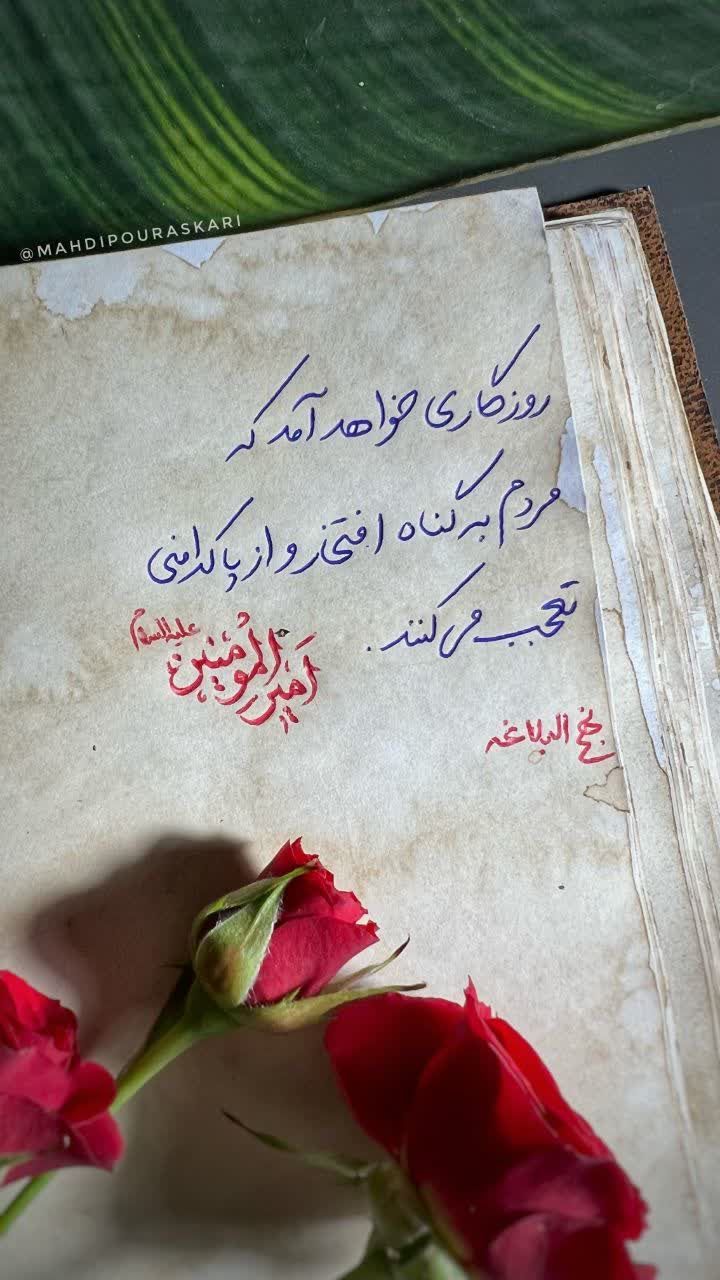 @MAHDIPOURASKARI
روزگاری خواهد آمد که
مردم به گناه افتخار و از پاکدامنی
تعجب می کنند.
امیرالمومنین علیه السلام
نهج البلاغه